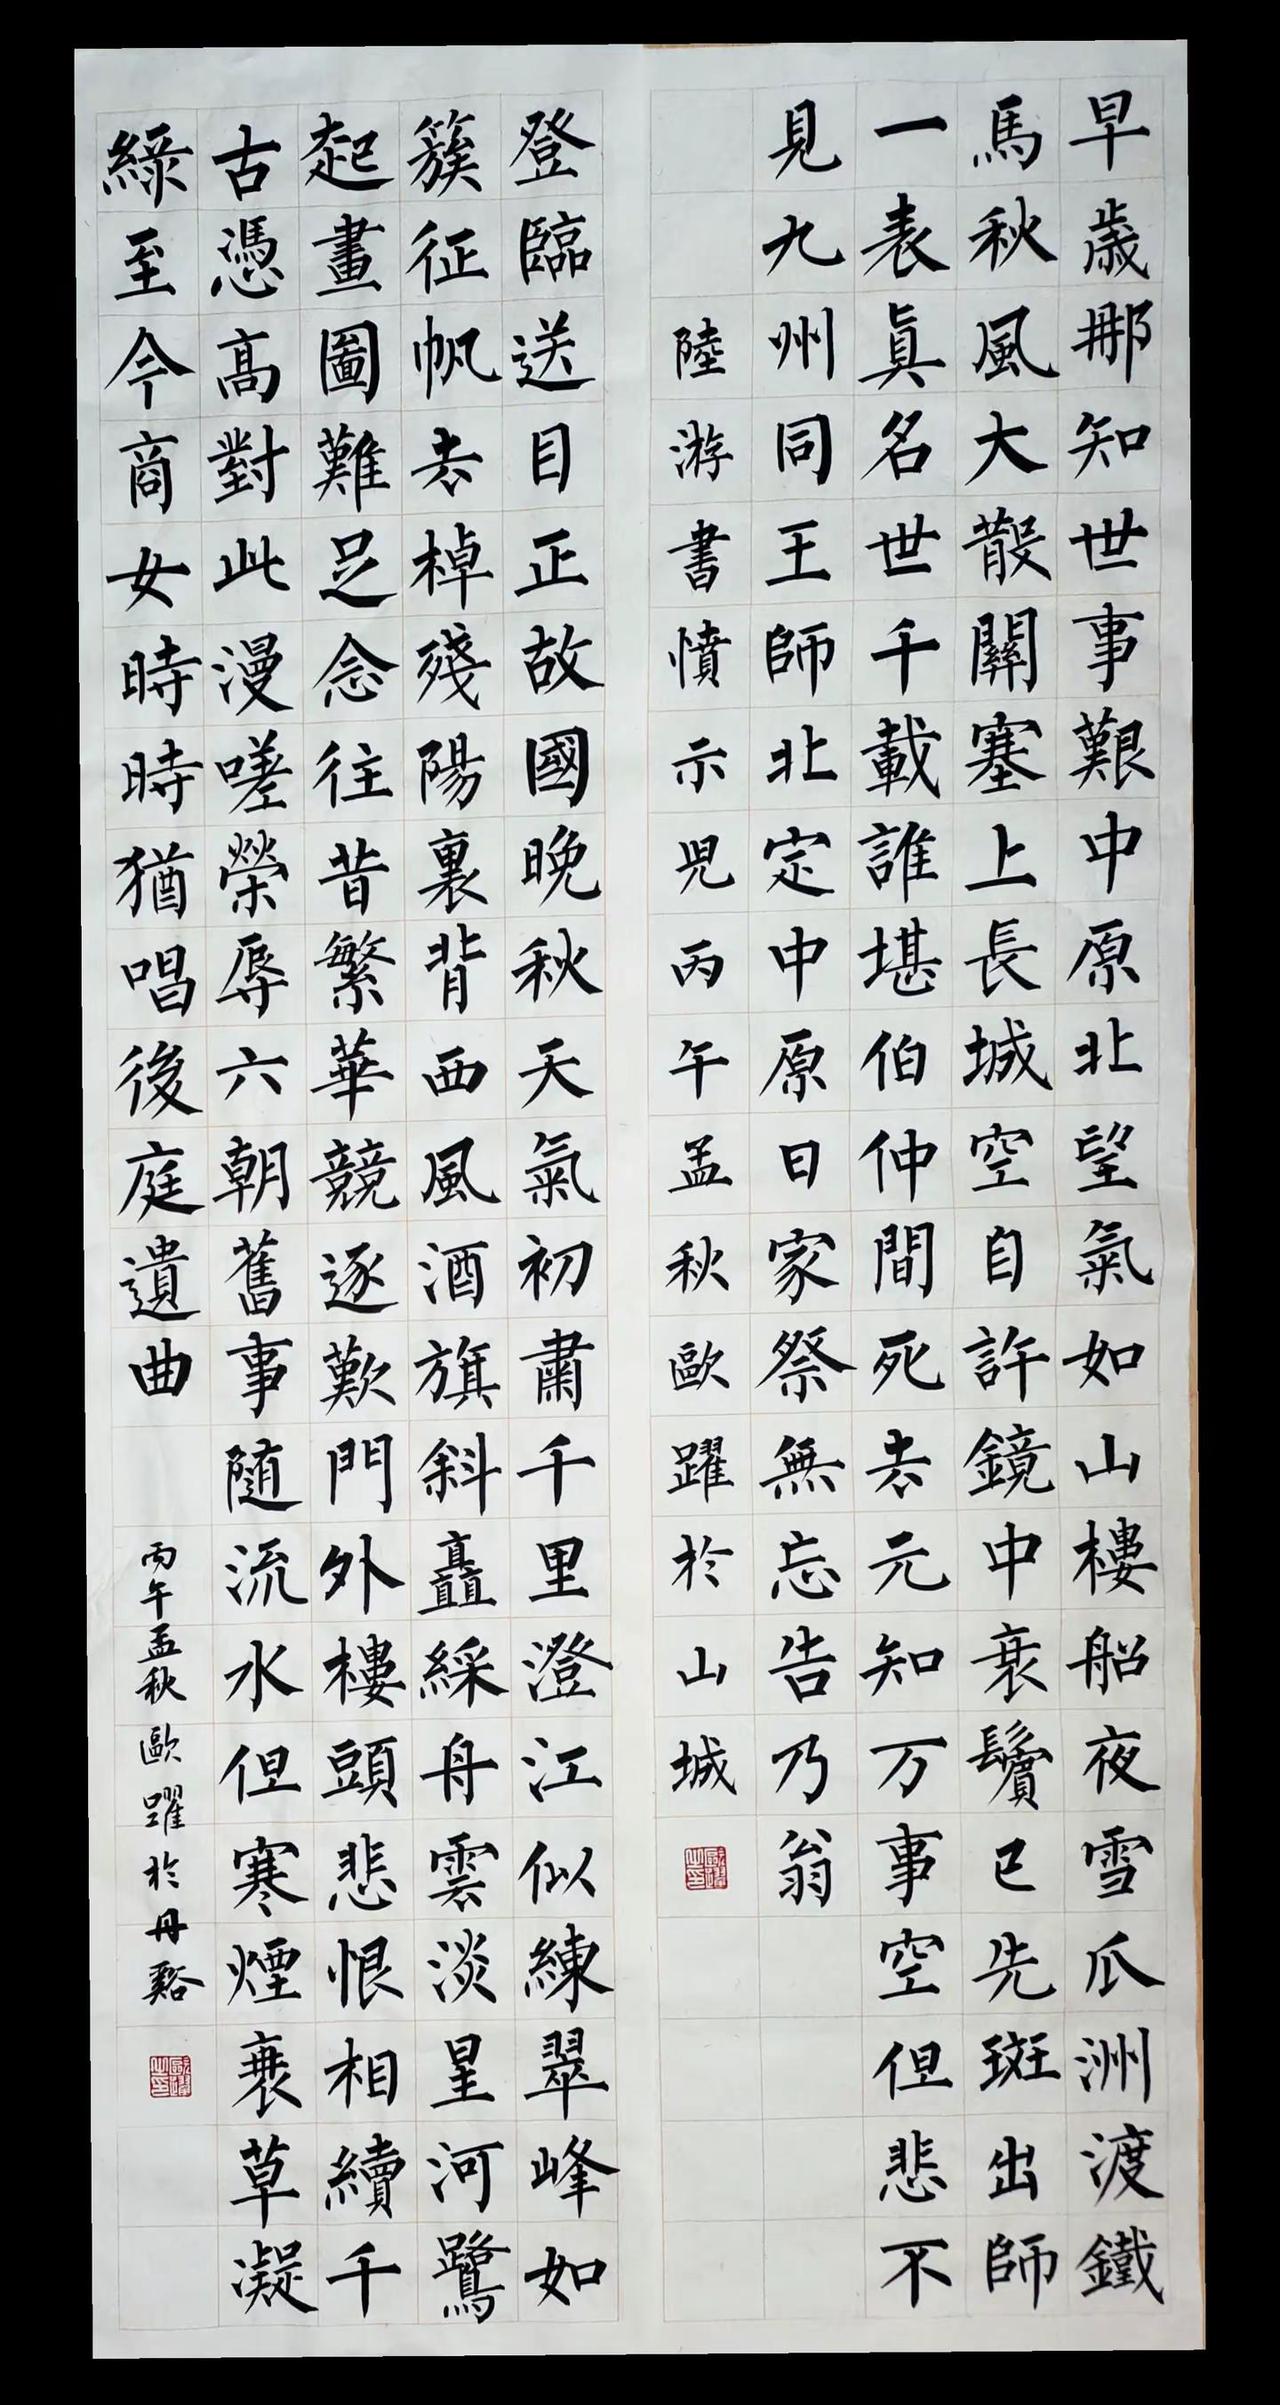 早歲那知世事艱中原北望氣如山樓船夜雪瓜洲渡鐵
馬秋風大散關塞上長城空自許鏡中衰鬢已先斑出師
一表真名世千載誰堪伯仲間死去元知万事空但悲不
見九州同王師北定中原日家祭無忘告乃翁
陸游書憤示兒丙午孟秋歐躍於山城
登臨送目正故國晚秋天氣初肅千里澄江似練翠峰如
簇征帆去棹殘陽裏背西風酒旗斜矗綵舟雲淡星河鷺
起畫圖難足念往昔繁華競逐歎門外樓頭悲恨相續千
古憑高對此漫嗟榮辱六朝舊事隨流水但寒煙衰草凝
綠至今商女時時猶唱後庭遺曲
丙午孟秋歐躍於丹谿